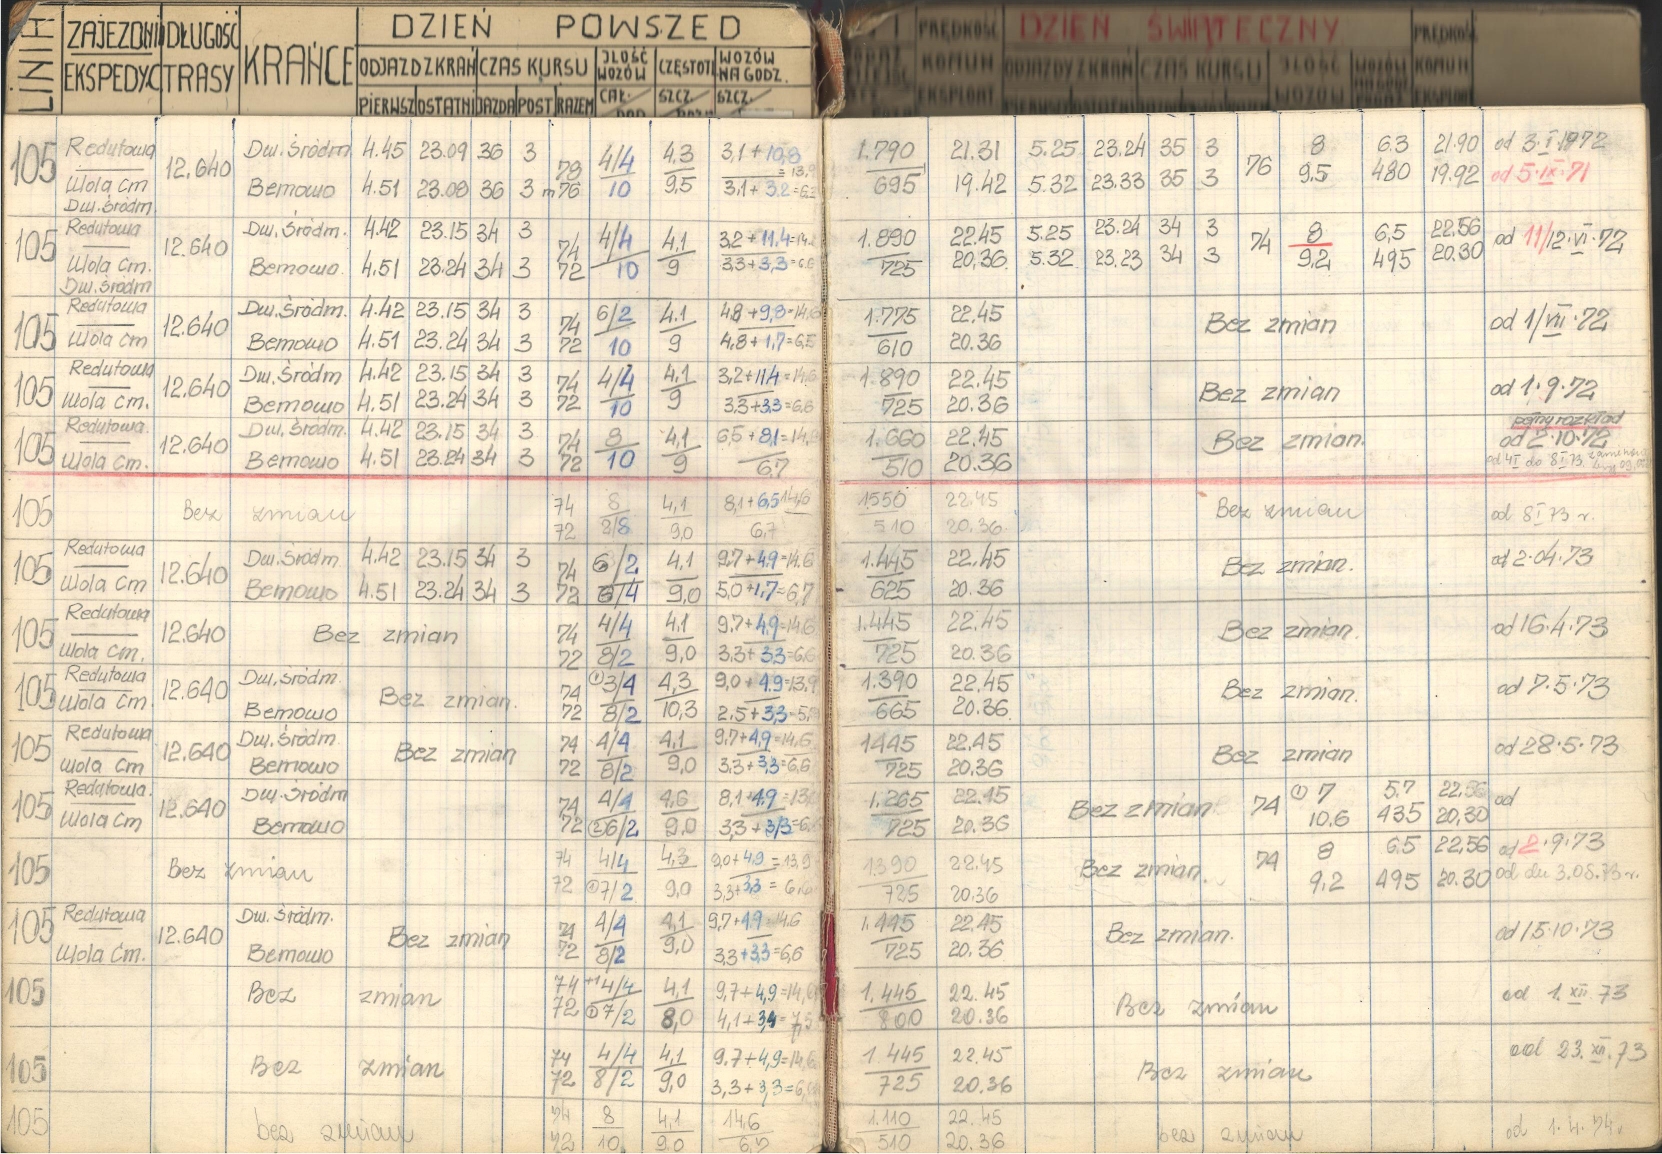 LINIA ZAJEZDNI EKSPEDYC DŁUGOŚĆ TRASY KRAŃCE DZIEŃ POWSZED
ODJAZD Z KRAŃ CZAS KURSU ILOŚĆ WOZÓW CZĘSTOTL WOZÓW NA GODZ.
PIERWSZ OSTATNI JAZDA POST RAZEM CAŁ. SZCZ. SZCZ.
PRĘDKOŚĆ KOMUN EKSPLOAT DZIEŃ ŚWIĄTECZNY PRĘDKOŚ KOMUN EKSPLOA
ODJAZDY Z KRAŃ CZAS KURSU ILOŚĆ WOZÓW
105 Redutowa 12.640 Dw. Śródm 4.45 23.09 36 3 78 4/4 4,3 3,1+10,8 1.790 21.31 5.25 23.24 35 3 76 8 6.3 21.90 od 3.I.1972
Wola Cm Bemowo 4.51 23.08 36 3 m76 10 9,5 3,1+3,2 695 19.42 5.32 23.33 35 3 9.5 480 19.92 od 5.IX.71
Dw. Śródm
105 Redutowa 12.640 Dw. Śródm. 4.42 23.15 34 3 74 4/4 4,1 3,2+11,4 1.890 22.45 5.25 23.24 34 3 74 8 6,5 22,56 od 11/12.VI.72
Wola Cm. Bemowo. 4.51 23.24 34 3 72 10 9 3,3+3,3=6,6 725 20,36 5.32 23.23 34 3 9,2 495 20.30
Dw. Śródm
105 Redutowa 12.640 Dw. Śródm. 4.42 23.15 34 3 74 6/2 4.1 4,8+9,8=14,6 1.775 22,45 Bez zmian od 1/VII.72
Wola Cm Bemowo 4.51 23.24 34 3 72 10 9 4,8+1,7=6,5 610 20.36
105 Redutowa 12.640 Dw. Śródm 4.42 23.15 34 3 74 4/4 4,1 3,2+11,4=14,6 1.890 22.45 Bez zmian od 1.9.72
Wola Cm. Bemowo 4.51 23.24 34 3 72 10 9 3,3+3,3=6,6 725 20.36
105 Redutowa. 12.640 Dw. Śródm. 4.42 23.15 34 3 74 8 4,1 6,5+8,1=14,6 1.660 22.45 Bez zmian. pełny rozkład
od 2.10.72
Wola Cm. Bemowo 4.51 23.24 34 3 72 10 9 6,7 510 20.36
105 Bez zmian 74 8 4,1 8,1+6,5 14,6 1550 22.45 Bez zmian od 8I73 r.
72 2/8 9,0 6,7 510 20.36
105 Redutowa 12.640 Dw. Śródm 4.42 23.15 34 3 74 6/2 4,1 9,7+4,9=14,6 1.445 22,45 Bez zmian. od 2.04.73
Wola Cm Bemowo 4.51 23.24 34 3 72 6/4 9,0 5,0+1,7=6,7 625 20.36
105 Redutowa 12.640 Bez zmian 74 4/4 4,1 9,7+4,9=14,6 1.445 22.45 Bez zmian. od 16.4.73
Wola Cm. 72 8/2 9,0 3,3+3,3=6,6 725 20.36
105 Redutowa 12.640 Dw. Śródm. Bez zmian. 74 ①3/4 4,3 9,0+4.9=13,9 1.390 22.45 Bez zmian. od 7.5.73
Wola Cm. Bemowo 72 8/2 10,3 2,5+3,3=5,8 665 20.36.
105 Redutowa 12.640 Dw. Śródm. Bez zmian 74 4/4 4,1 9,7+4,9=14,6 1445 22.45 Bez zmian od 28.5.73
Wola Cm Bemowo 72 8/2 9,0 3,3+3,3=6,6 725 20.36
105 Redutowa. 12.640 Dw. Śródm 74 4/4 4,6 8,1+4,9=13 1.265 22.45 Bez zmian 74 ①7 5.7 22,56 od
Wola Cm Bemowo 72 ②6/2 9.0 3,3+3,3=6, 725 20.36 10.6 435 20,30
105 Bez zmian 74 4/4 4,3 9,0+4,9=13,9 1390 22.45 Bez zmian. 74 8 6.5 22,56 od 2.9.73
72 ①7/2 9,0 3,3+3,3=6,6 725 20.36 9.2 495 20.30 od dn 3.08.73 r.
105 Redutowa 12.640 Dw. Śródm. Bez zmian 74 4/4 4,1 9,7+4,9=14,6 1.445 22.45 Bez zmian. od 15.10.73
Wola Cm. Bemowo 72 8/2 9,0 3,3+3,3=6,6 725 20.36
105 Bez zmian 74 +1 4/4 4,1 9,7+4,9=14,6 1.445 22.45 Bez zmian od 1.XII 73
72 ①7/2 8,0 4,1+3,4=7,5 800 20.36
105 Bez zmian 74 4/4 4,1 9.7+4,9=14,6 1.445 22.45 Bez zmian od 23.XII.73
72 8/2 9,0 3,3+3,3=6,6 725 20.36
105 bez zmian 74 8 4,1 14,6 1.110 22.45 bez zmian od 1.4.74r.
72 10 9.0 6,7 510 20.36